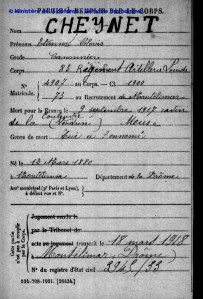 PARTIE À REMPLIR PAR LE CORPS.
CHEYNET
Prénoms Etienne Clovis
Grade Canonnier
Corps 82 Régiment Artillerie Lourde
N° 4395 au Corps. — Cl. 1900
Matricule. 73 au Recrutement de Montélimar
Mort pour la France le 9 septembre 1917
de la (Verdun) Meuse
Genre de mort Tué à l'ennemi
Né le 12 Mars 1880
à Département de la Drôme
Arr' municipal (pr Paris et Lyon),
à défaut rue et N°.
Cette partie
n'est pas à remplir
par le Corps.
Jugement rendu le
par le Tribunal de
acte ou jugement transcrit le 18 mart 1918
à Montélimar (Drôme)
N° du registre d'état civil 394/55
534-708-1921. [26434.]